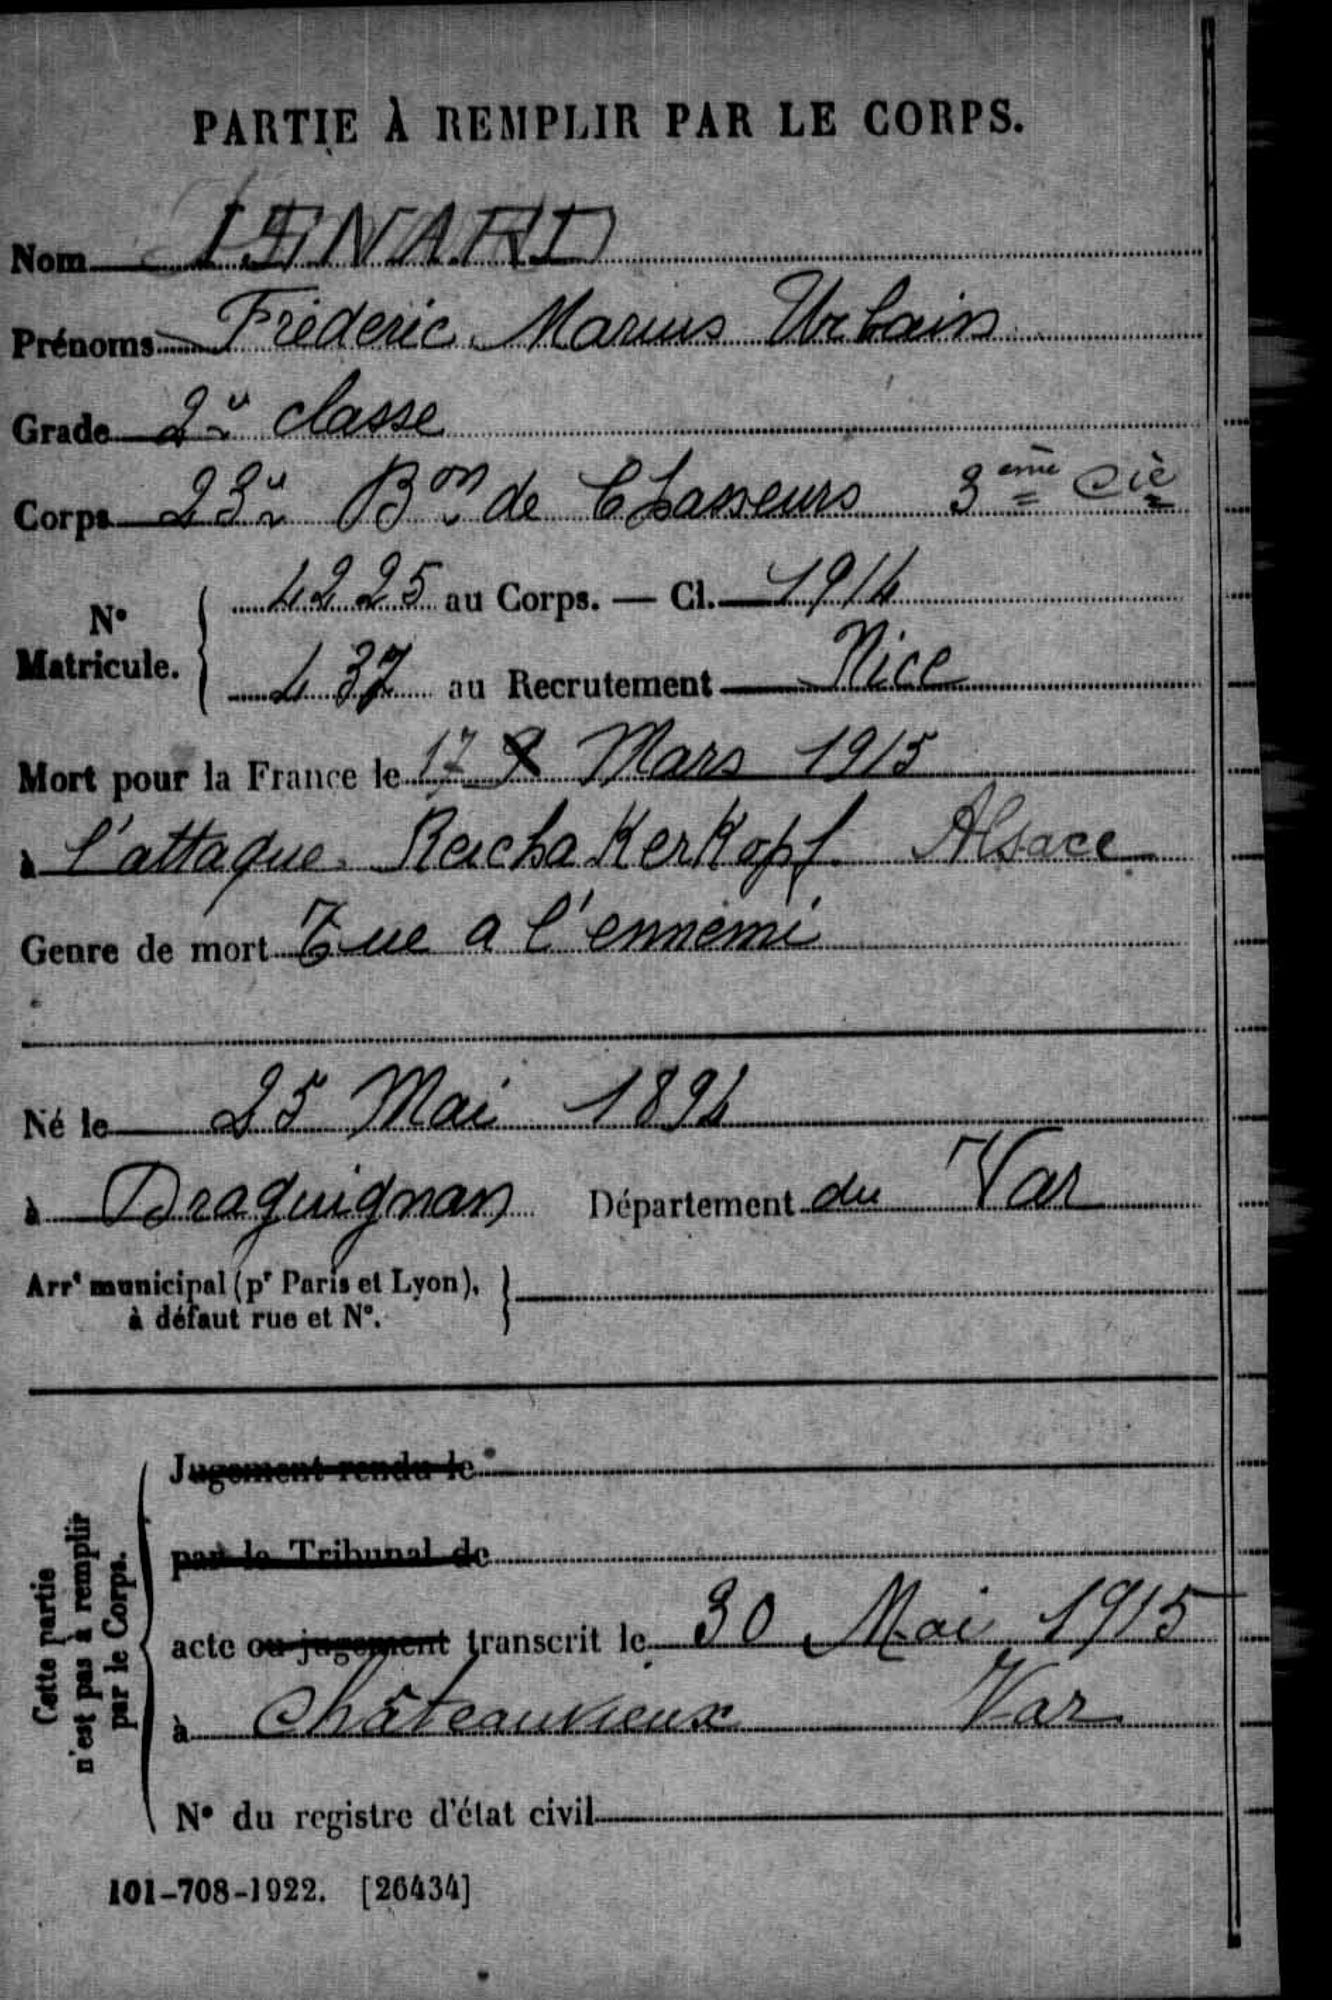 PARTIE À REMPLIR PAR LE CORPS.
Nom ISNARD
Prénoms Fréderic Marius Urbain
Grade 2e classe
Corps 23e Bon de Chasseurs 3ème Cie
No Matricule. 4225 au Corps. — Cl. 1914
437 au Recrutement Nice
Mort pour la France le 17 Mars 1915
à l'attaque Reichakerkopf Alsace
Genre de mort Tue a l'ennemi
Né le 25 Mai 1894
à Draguignan Département du Var
Arrt municipal (pr Paris et Lyon),
à défaut rue et No.
Jugement rendu le
par le Tribunal de
acte ou jugement transcrit le 30 Mai 1915
à Châteauvieux Var
No du registre d'état civil
Cette partie
n'est pas à remplir
par le Corps.
101-708-1922. [26434]